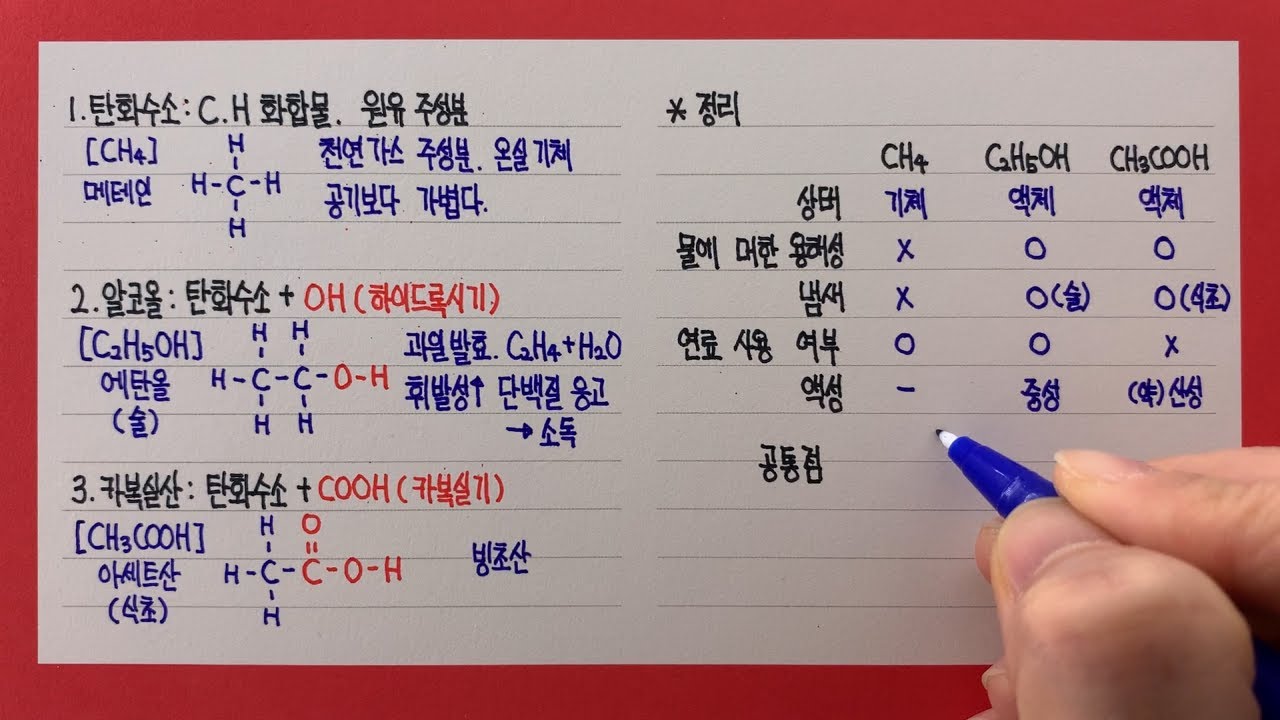 1. 탄화수소 : C.H 화합물. 원유 주성분
[CH4]
메테인
H
H-C-H
H
천연가스 주성분. 온실기체
공기보다 가볍다.
2. 알코올 : 탄화수소 + OH (하이드록시기)
[C2H5OH]
에탄올
(술)
H H
H-C-C-O-H
H H
과일발효. C2H4+H2O
휘발성↑ 단백질 응고
→ 소독
3. 카복실산 : 탄화수소 + COOH (카복실기)
[CH3COOH]
아세트산
(식초)
H O
H-C-C-O-H
H
빙초산
* 정리
CH4 C2H5OH CH3COOH
상태 기체 액체 액체
물에 대한 용해성 X O O
냄새 X O(술) O(식초)
연료 사용 여부 O O X
액성 - 중성 (약)산성
공통점